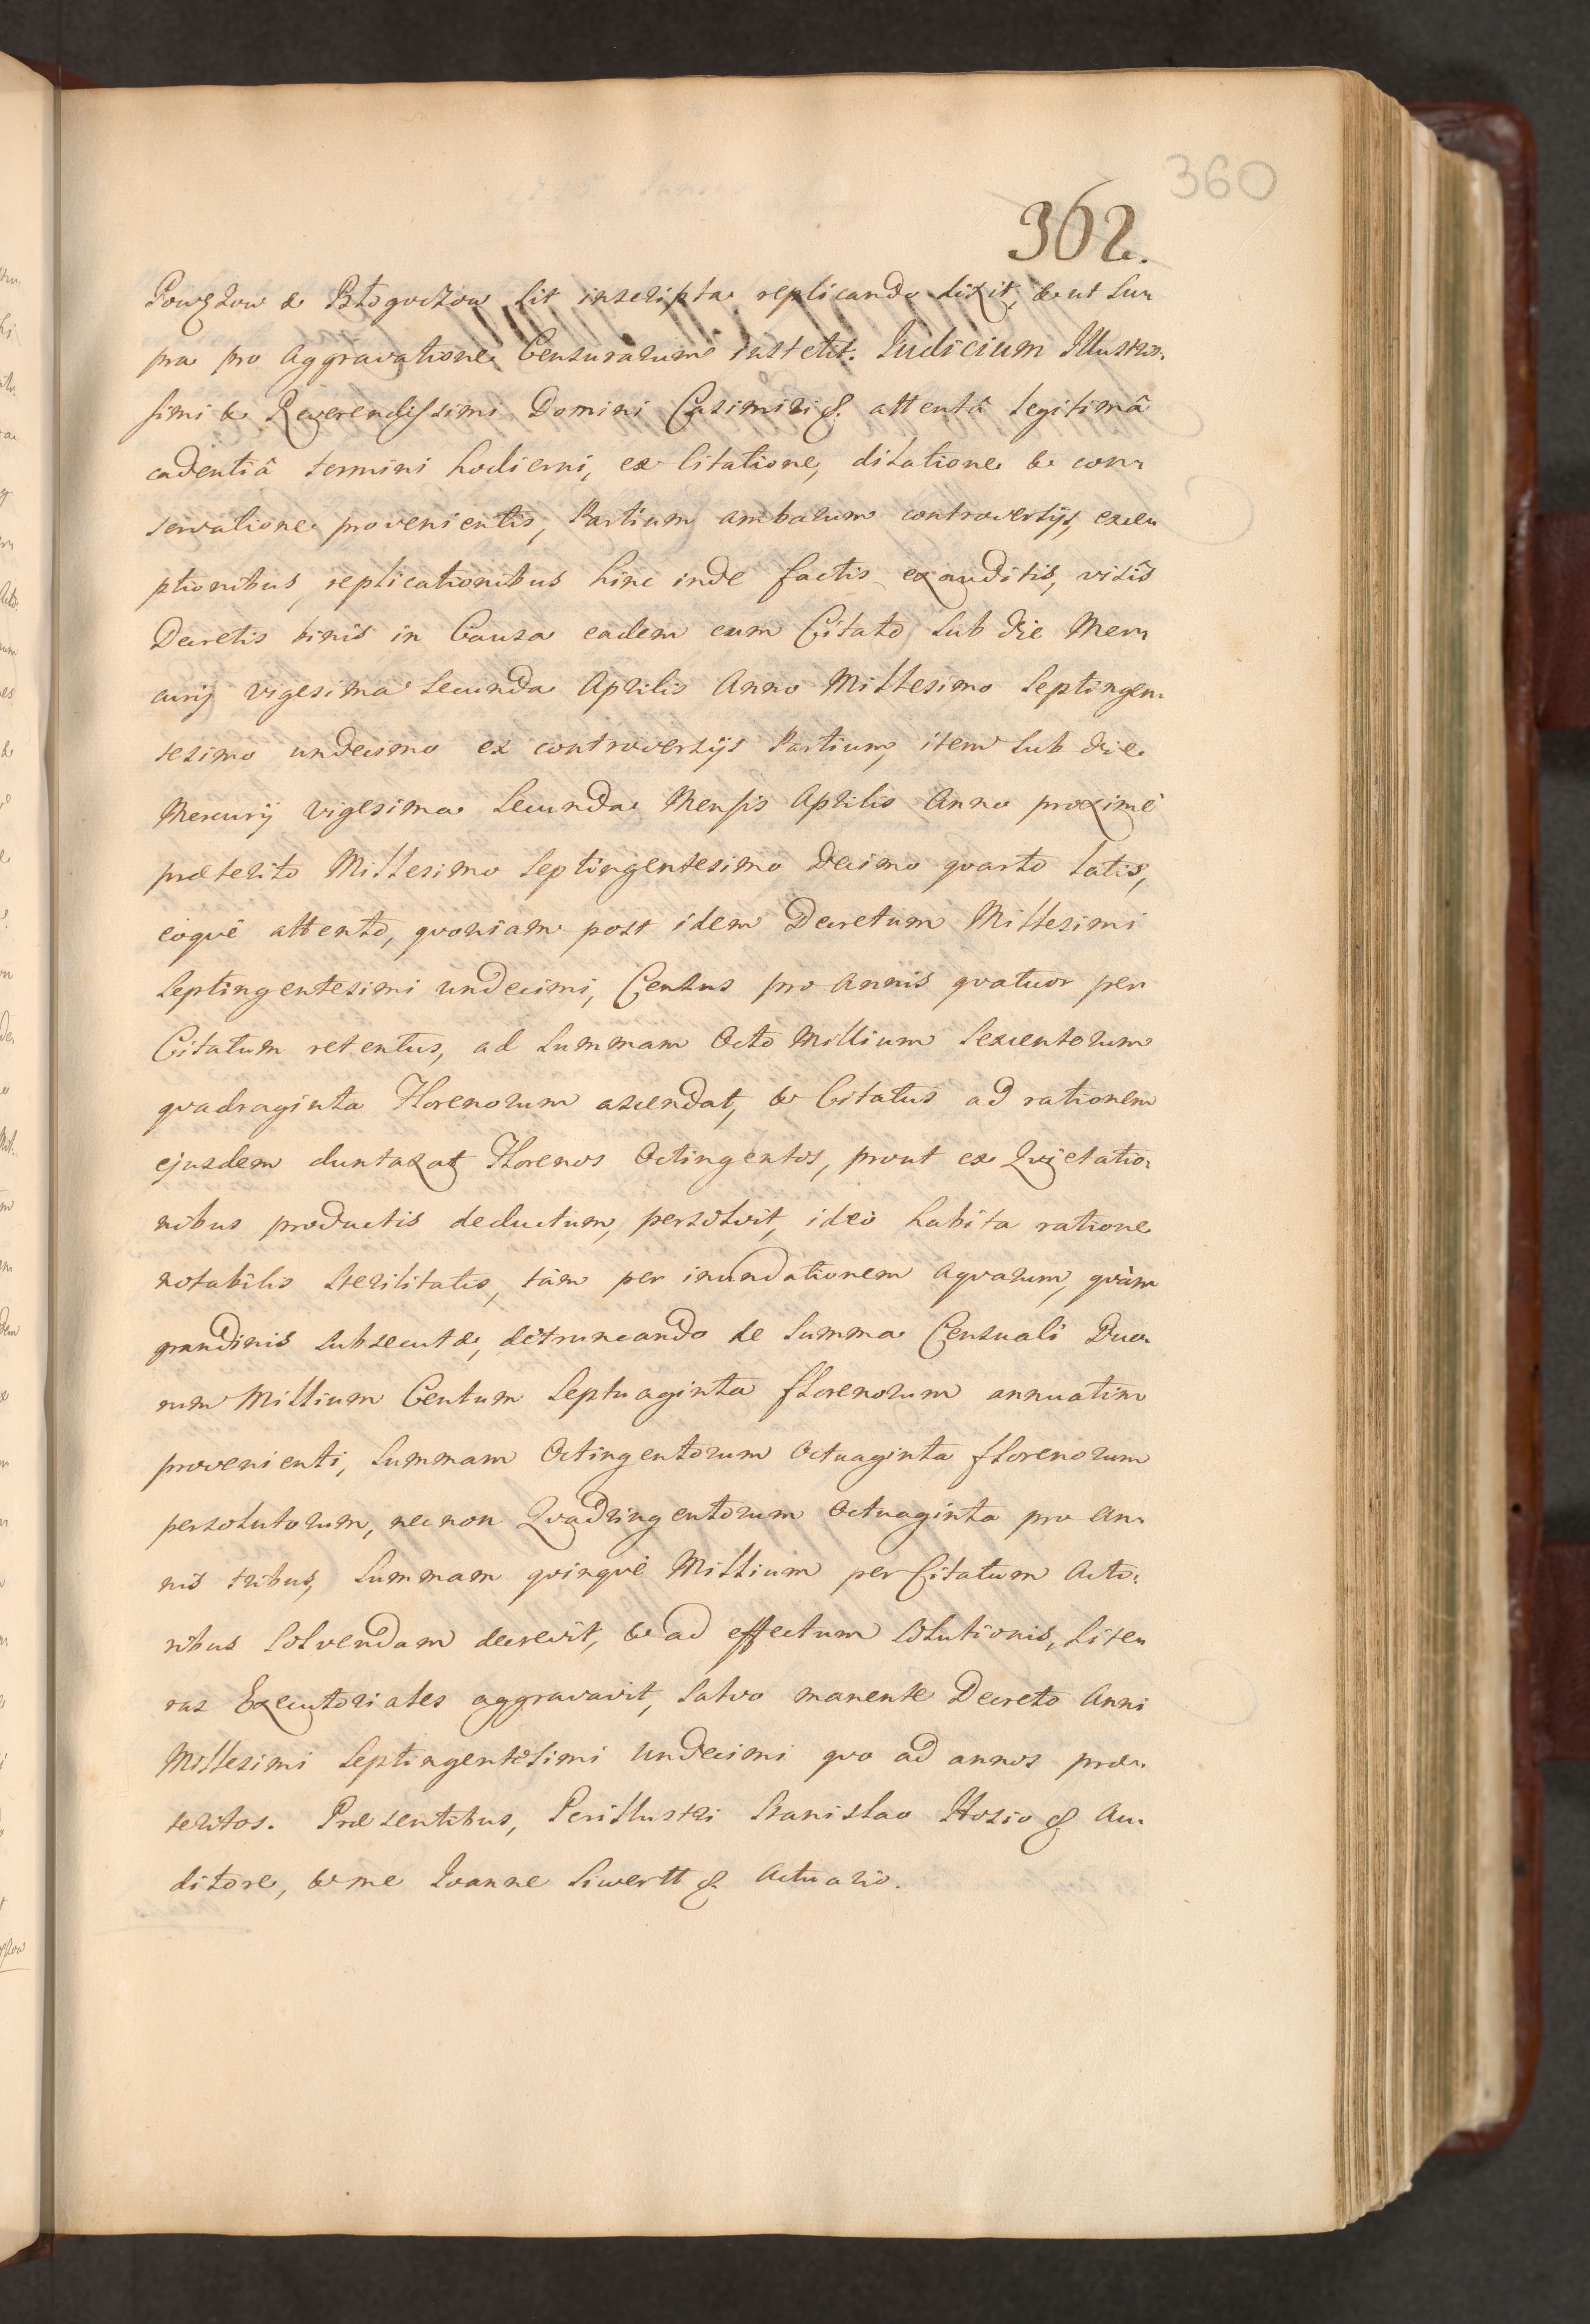 360
362.
Powęzow & Błogoczow sit inscripta replicando dixit, & ut su-
pra pro aggravatione Censurarum institit. Iudicium Illustris-
simi & Reverendissimi Domini Casimiri &. attentâ legitimâ
cadentiâ termini hodierni, ex Citatione, dilatione & con-
servatione provenientis, Partium ambarum controversijs, exce-
ptionibus, replicationibus hinc inde factis exauditis, visis
Decretis binis in Causa eadem cum Citato sub die Mer-
curij vigesima secunda Aprilis Anno Millesimo Septingen-
tesimo undecimo ex controversijs Partium, item sub die
Mercurij vigesima secunda Mensis Aprilis Anno proximè
præterito Millesimo Septingentesimo decimo quarto latis,
eoquè attento, quoniam post idem Decretum Millesimi
Septingentesimi undecimi, Census pro annis quatuor per
Citatum retentus, ad summam Octo Millium Sexcentorum
quadraginta Florenorum ascendat, & Citatus ad rationem
ejusdem duntaxat Florenos Octingentos, prout ex Quietatio-
nibus productis deductum, persolvit, ideò habita ratione
notabilis sterilitatis, tàm per inundationem aquarum, quàm
grandinis subsecutæ, detruncando de summa Censuali Duo-
rum Millium Centum Septuaginta florenorum annuatim
provenienti, summam Octingentorum Octuaginta florenorum
persolutorum, nec non Quadringentorum Octuaginta pro an-
nis tribus, summam quinquè Millium per Citatum Acto-
ribus solvendam decrevit, & ad effectum solutionis, Lite-
ras Executoriales aggravavit, salvo manente Decreto Anni
Millesimi Septingentesimi undecimi quo ad annos præ-
teritos. Præsentibus, Perillustri Stanislao Hosio & Au-
ditore, & me Ioanne Siwertt & Actuario.